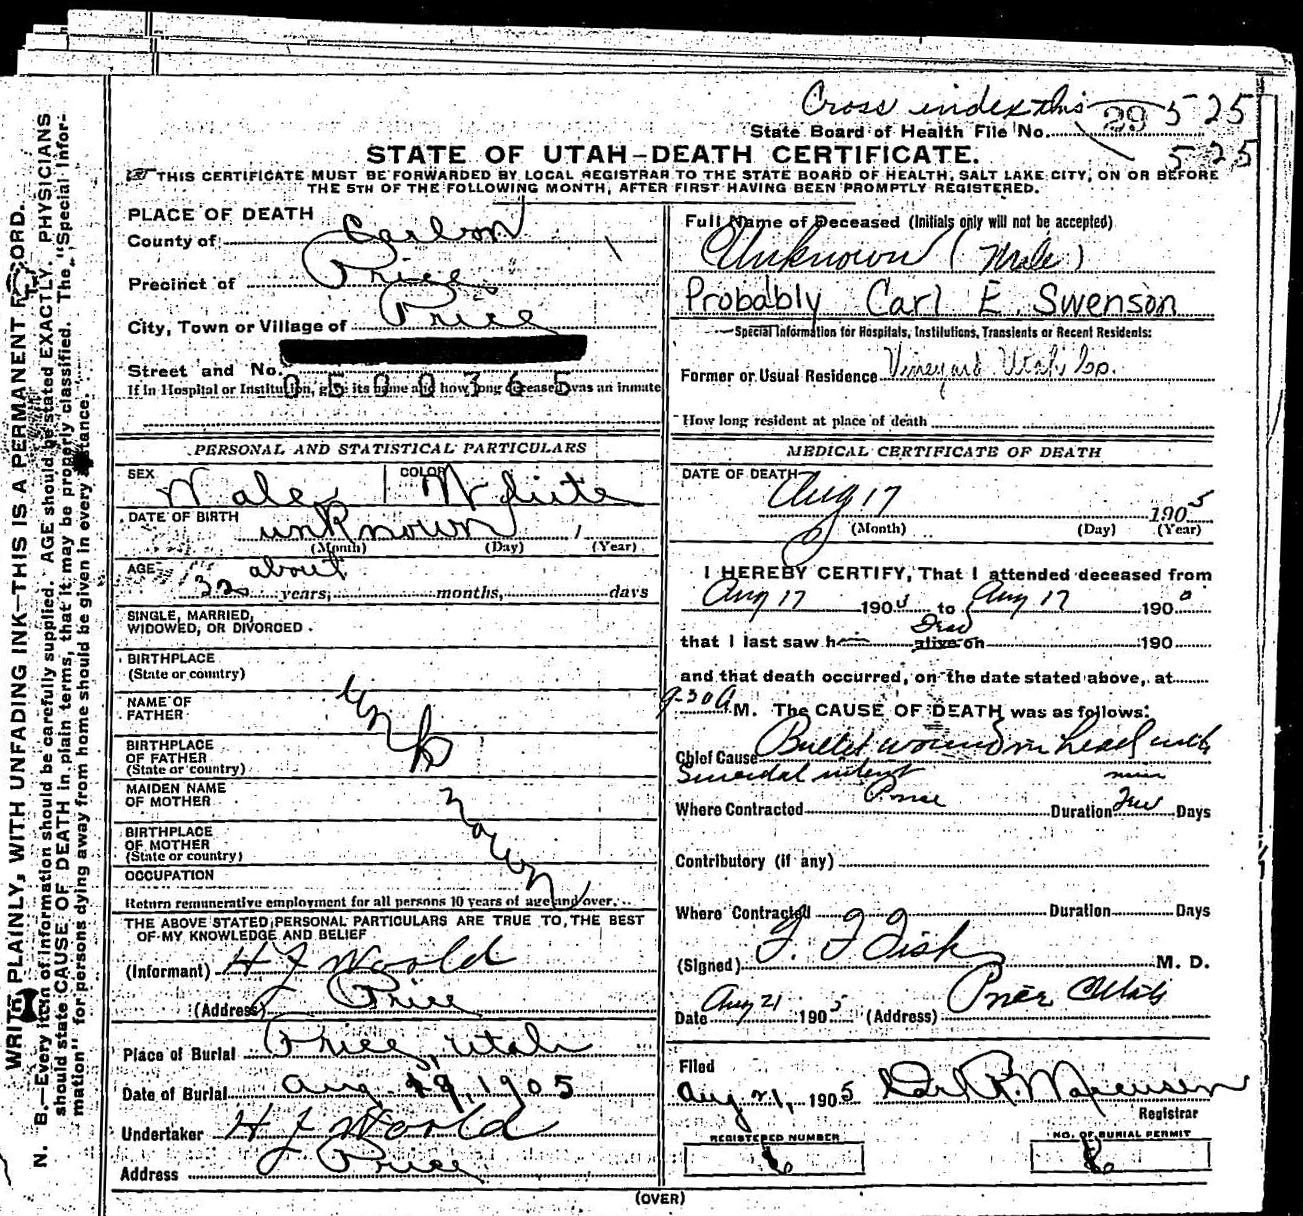 Cross index this
State Board of Health File No. 29 525
525
STATE OF UTAH—DEATH CERTIFICATE.
THIS CERTIFICATE MUST BE FORWARDED BY LOCAL REGISTRAR TO THE STATE BOARD OF HEALTH, SALT LAKE CITY, ON OR BEFORE
THE 5TH OF THE FOLLOWING MONTH, AFTER FIRST HAVING BEEN PROMPTLY REGISTERED.
PLACE OF DEATH
County of Carbon
Precinct of Price
City, Town or Village of Price
Street and No.
0500365
If in Hospital or Institution, give its name and how long deceased was an inmate
PERSONAL AND STATISTICAL PARTICULARS
SEX Male COLOR White
DATE OF BIRTH unknown
(Month) (Day) (Year)
AGE about
years, months, days
SINGLE, MARRIED,
WIDOWED, OR DIVORCED
BIRTHPLACE
(State or country)
NAME OF
FATHER
BIRTHPLACE
OF FATHER
(State or country)
MAIDEN NAME
OF MOTHER
BIRTHPLACE
OF MOTHER
(State or country)
OCCUPATION
Unknown
Return remunerative employment for all persons 10 years of age and over.
THE ABOVE STATED PERSONAL PARTICULARS ARE TRUE TO THE BEST
OF MY KNOWLEDGE AND BELIEF
(Informant) H J
(Address) Price
Place of Burial Price, Utah
Date of Burial Aug. 19, 1905
Undertaker H J
Address Price
Full Name of Deceased (Initials only will not be accepted)
Unknown (Male)
Probably Carl E. Swenson
Special Information for Hospitals, Institutions, Transients or Recent Residents:
Former or Usual Residence Vineyard Utah Co.
How long resident at place of death
MEDICAL CERTIFICATE OF DEATH
DATE OF DEATH
Aug 17 1905
(Month) (Day) (Year)
I HEREBY CERTIFY, That I attended deceased from
Aug 17 1905 to Aug 17 190
Dead
that I last saw h alive on 190
and that death occurred, on the date stated above, at
9-30 A M. The CAUSE OF DEATH was as follows:
Chief Cause Bullet wound in head with
Suicidal intent
min
Where Contracted Price Duration few Days
Contributory (if any)
Where Contracted Duration Days
(Signed) F. F. Fisk M. D.
Date Aug 21 1905 (Address) Price Utah
Filed
Aug 21, 1905
Registrar
REGISTERED NUMBER
6
NO. OF BURIAL PERMIT
6
(OVER)
WRITE PLAINLY, WITH UNFADING INK—THIS IS A PERMANENT RECORD.
N. B.—Every item of information should be carefully supplied. AGE should be stated EXACTLY. PHYSICIANS
should state CAUSE OF DEATH in plain terms, that it may be properly classified. The "Special Infor-
mation" for persons dying away from home should be given in every instance.